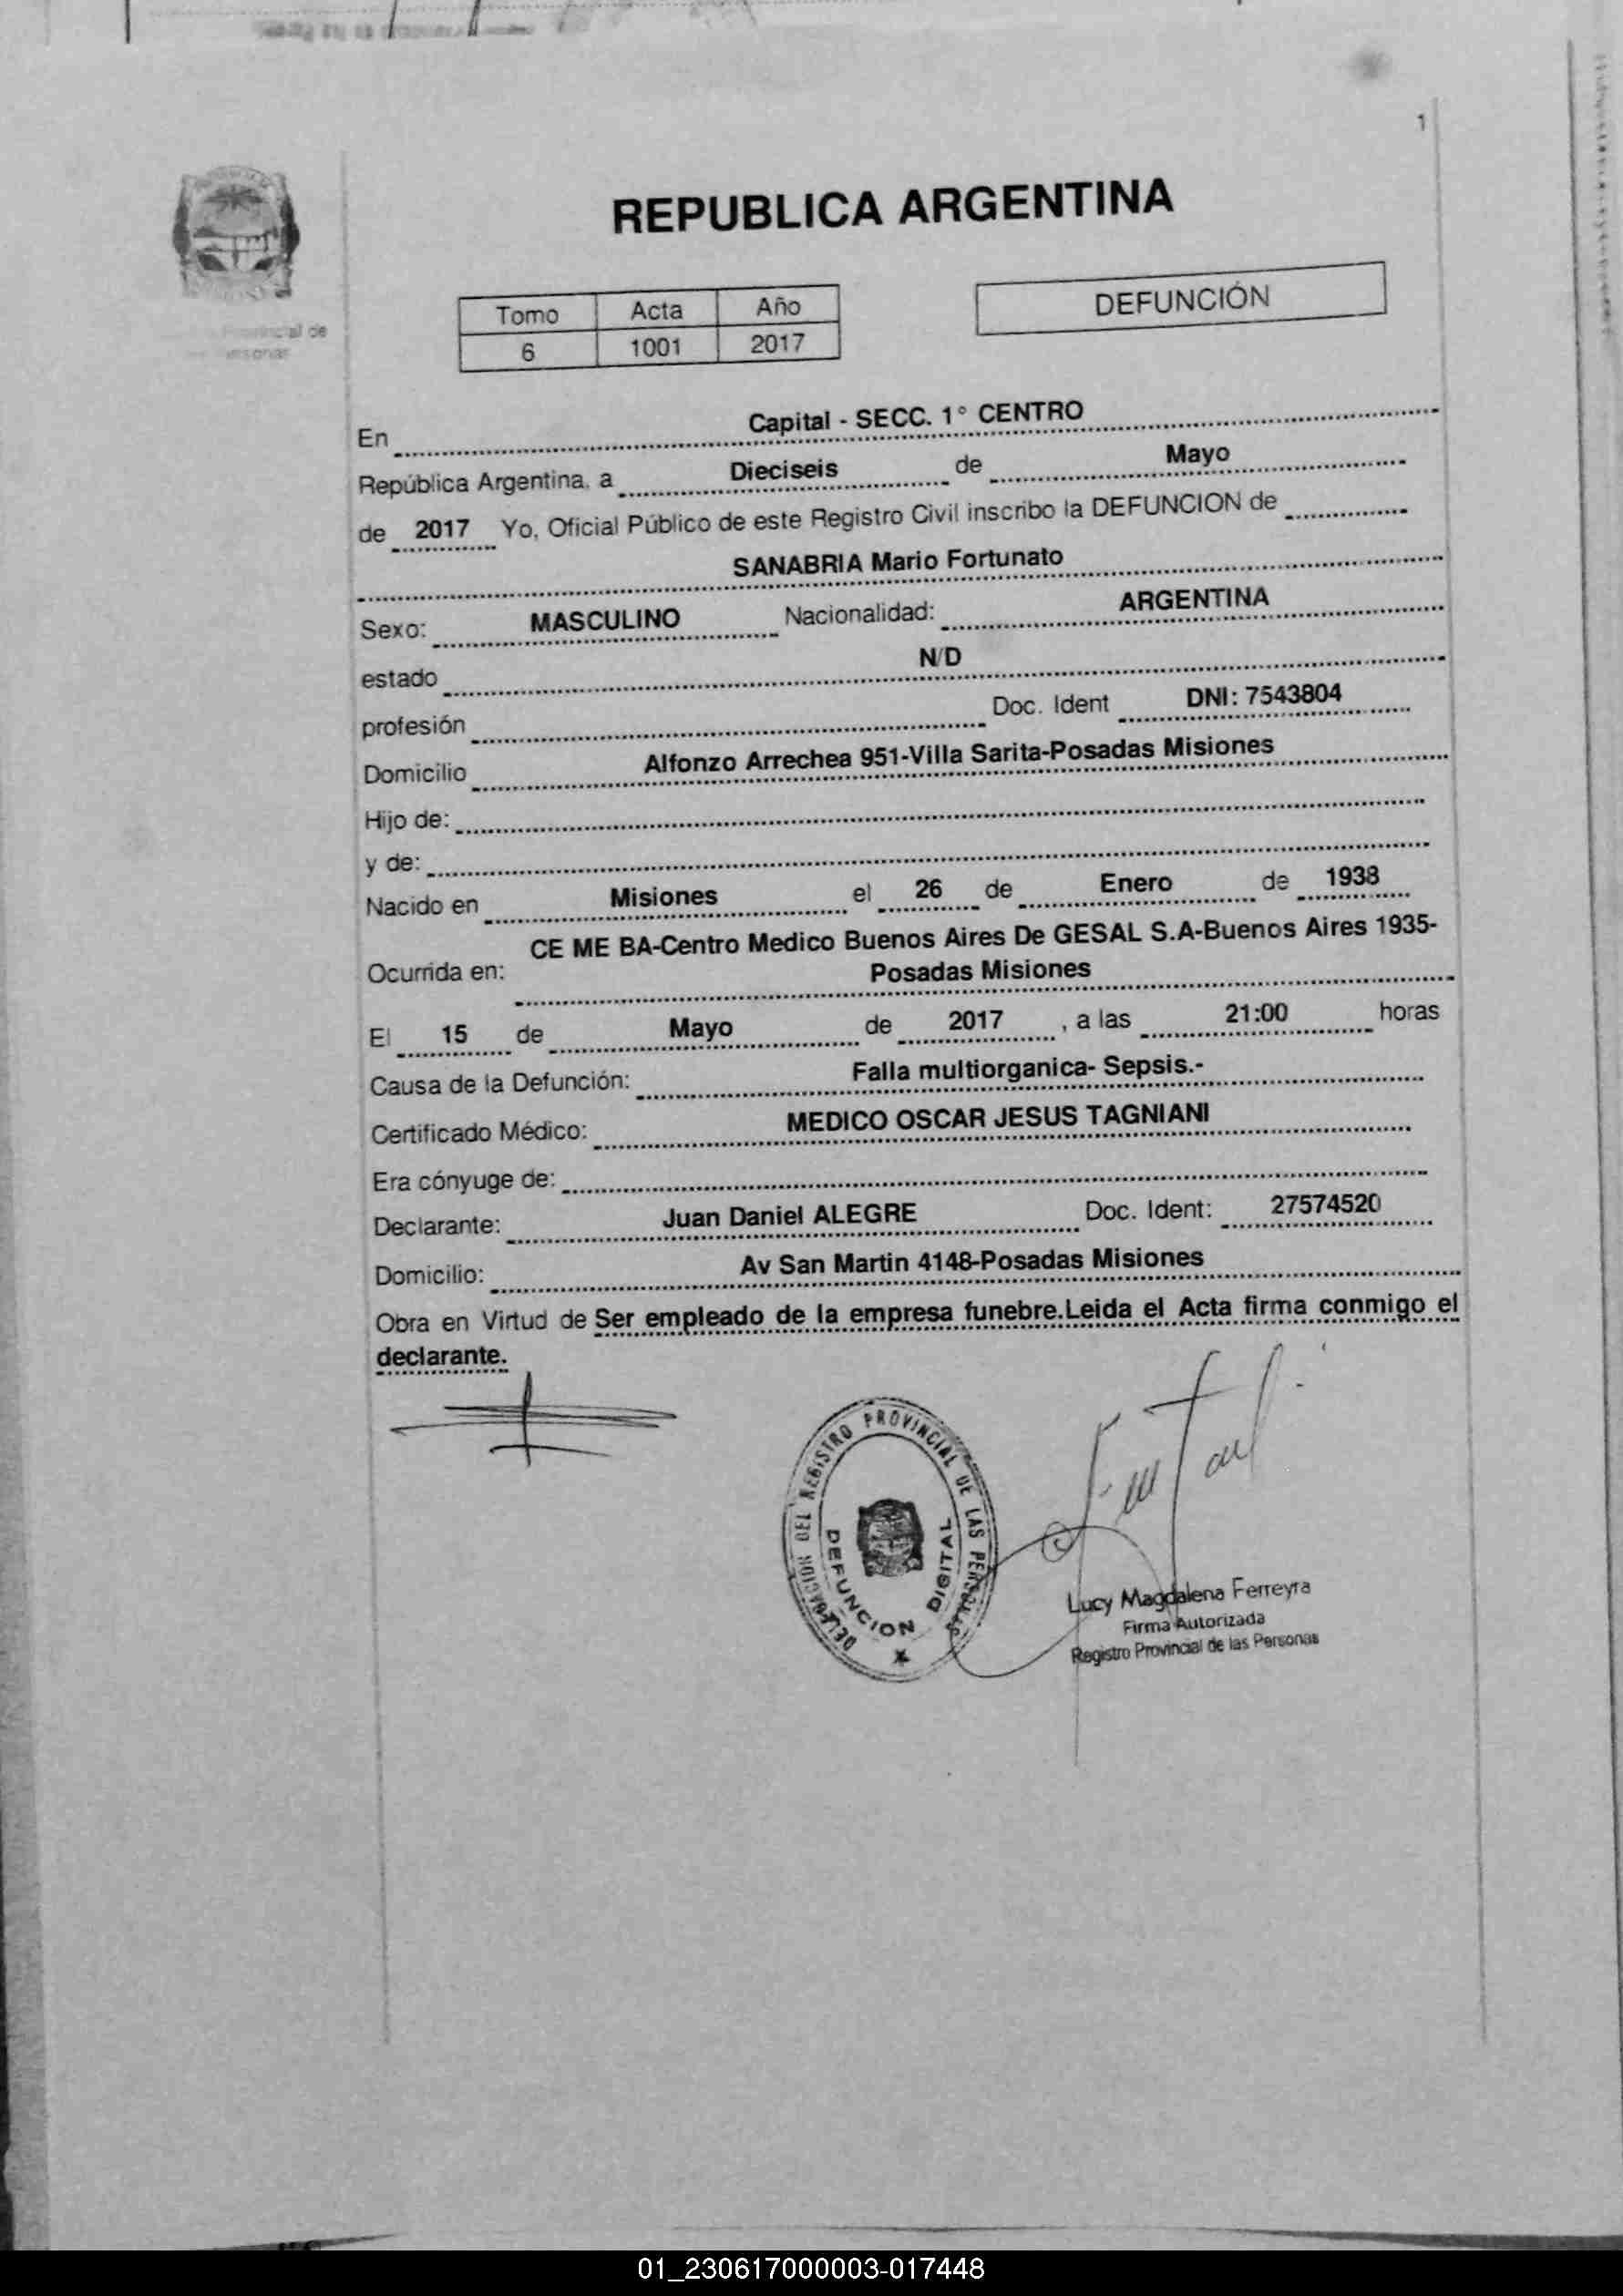 1
REPUBLICA ARGENTINA
Tomo Acta Año
6 1001 2017
DEFUNCIÓN
Provincial de
En Capital - SECC. 1° CENTRO
República Argentina, a Dieciseis de Mayo
de 2017 Yo, Oficial Público de este Registro Civil inscribo la DEFUNCION de
SANABRIA Mario Fortunato
Sexo: MASCULINO Nacionalidad: ARGENTINA
estado N/D
profesión Doc. Ident DNI: 7543804
Domicilio Alfonzo Arrechea 951-Villa Sarita-Posadas Misiones
Hijo de:
y de:
Nacido en Misiones el 26 de Enero de 1938
CE ME BA-Centro Medico Buenos Aires De GESAL S.A-Buenos Aires 1935-
Ocurrida en: Posadas Misiones
El 15 de Mayo de 2017 , a las 21:00 horas
Causa de la Defunción: Falla multiorganica- Sepsis.-
Certificado Médico: MEDICO OSCAR JESUS TAGNIANI
Era cónyuge de:
Declarante: Juan Daniel ALEGRE Doc. Ident: 27574520
Domicilio: Av San Martin 4148-Posadas Misiones
Obra en Virtud de Ser empleado de la empresa funebre.Leida el Acta firma conmigo el
declarante.
DELEGACION DEL REGISTRO PROVINCIAL DE LAS PERSONAS
DEFUNCION DIGITAL
Lucy Magdalena Ferreyra
Firma Autorizada
Registro Provincial de las Personas
01_230617000003-017448